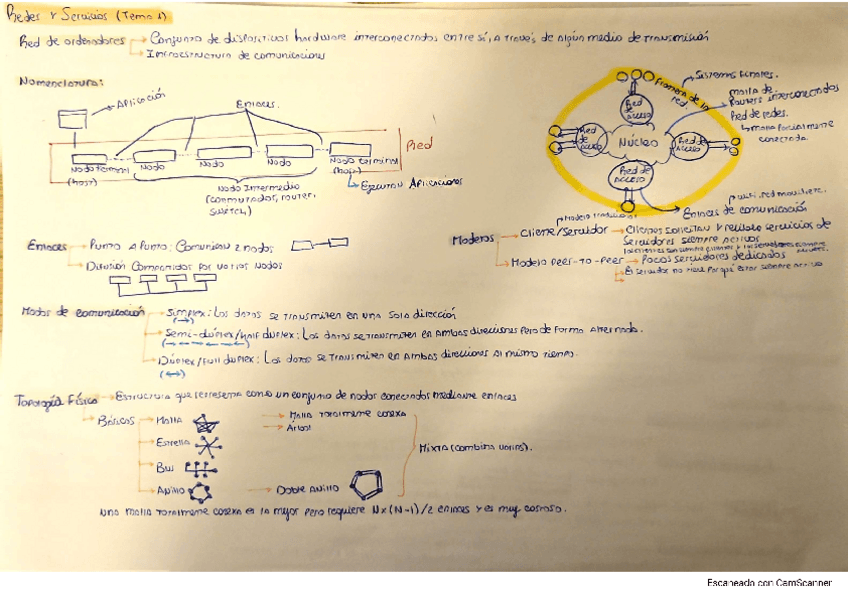 Redes y Servicios (Tema 1)
Red de ordenadores → Conjunto de dispositivos hardware interconectados entre sí, a través de algún medio de transmisión
→ Infraestructura de comunicaciones
Nomenclatura:
Aplicación
Enlaces
Red
Nodo terminal (host)
Nodo
Nodo
Nodo
Nodo terminal (host)
Ejecutan Aplicaciones
Nodo Intermedio
(conmutador, router,
switch)
Sistemas finales.
Frontera de la red
malla de
Routers interconectados
Red de redes.
malla parcialmente
conectada.
Red de Acceso
Red de Acceso
Núcleo
Red de Acceso
Red de Acceso
wifi, red movil, etc.
Enlaces de comunicación
Enlaces → Punto a Punto: Comunican 2 nodos
→ Difusión Compartidos por varios nodos
Modelo tradicional
Modelos → Cliente/Servidor → Clientes solicitan y reciben servicios de
Servidores siempre activos
→ Modelo Peer-to-Peer → Pocos servidores dedicados
→ El servidor no tiene por qué estar siempre activo
Modos de comunicación → Simplex: Los datos se transmiten en una sola dirección
→ Semi-dúplex/half duplex: Los datos se transmiten en ambas direcciones pero de forma alternada.
→ Dúplex/full duplex: Los datos se transmiten en ambas direcciones al mismo tiempo.
Topología Física → Estructura que representa como un conjunto de nodos conectados mediante enlaces
→ Básicos → Malla → Malla totalmente conexa
→ Árbol
→ Estrella
Mixta (combina varios).
→ Bus
→ Anillo → Doble anillo
Una malla totalmente conexa es la mejor pero requiere N×(N-1)/2 enlaces y es muy costoso.
Escaneado con CamScanner